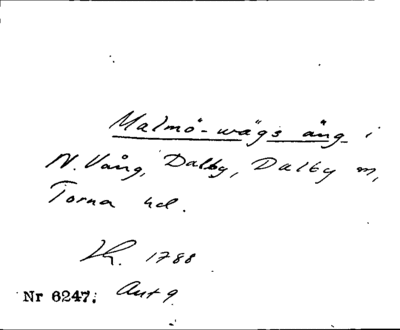 Malmö-wägs äng i
N. Vång, Dalby, Dalby m,
Torna hd.
Lk. 1788
Nr 6247. Akt 9.